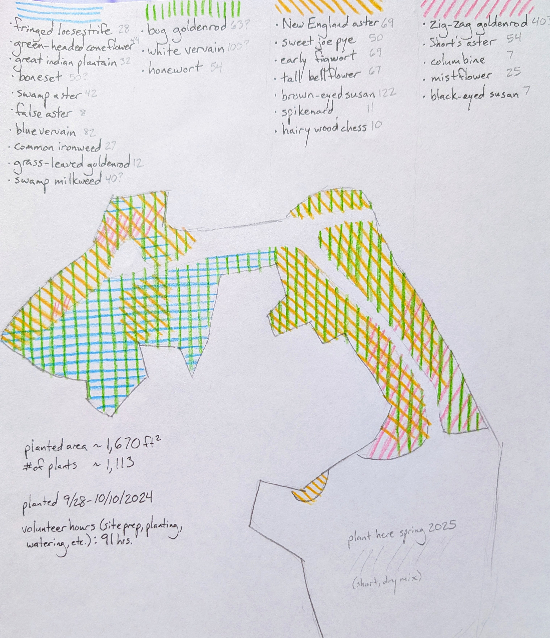 · fringed loosestrife 28
· green-headed coneflower
· great indian plantain 32
· boneset 50?
· swamp aster 42
· false aster 8
· blue vervain 82
· common ironweed 27
· grass-leaved goldenrod 12
· swamp milkweed 40?
· bog goldenrod 63?
· white vervain 100?
· honewort 54
· New England aster 69
· sweet joe pye 50
· early figwort 69
· tall bellflower 67
· brown-eyed susan 122
· spikenard 11
· hairy wood chess 10
· zig-zag goldenrod 40?
· Short's aster 54
· columbine 7
· mistflower 25
· black-eyed susan 7
planted area ~ 1,670 ft²
# of plants ~ 1,113
planted 9/28-10/10/2024
volunteer hours (site prep, planting,
watering, etc.): 91 hrs.
plant here spring 2025
(short, dry mix)